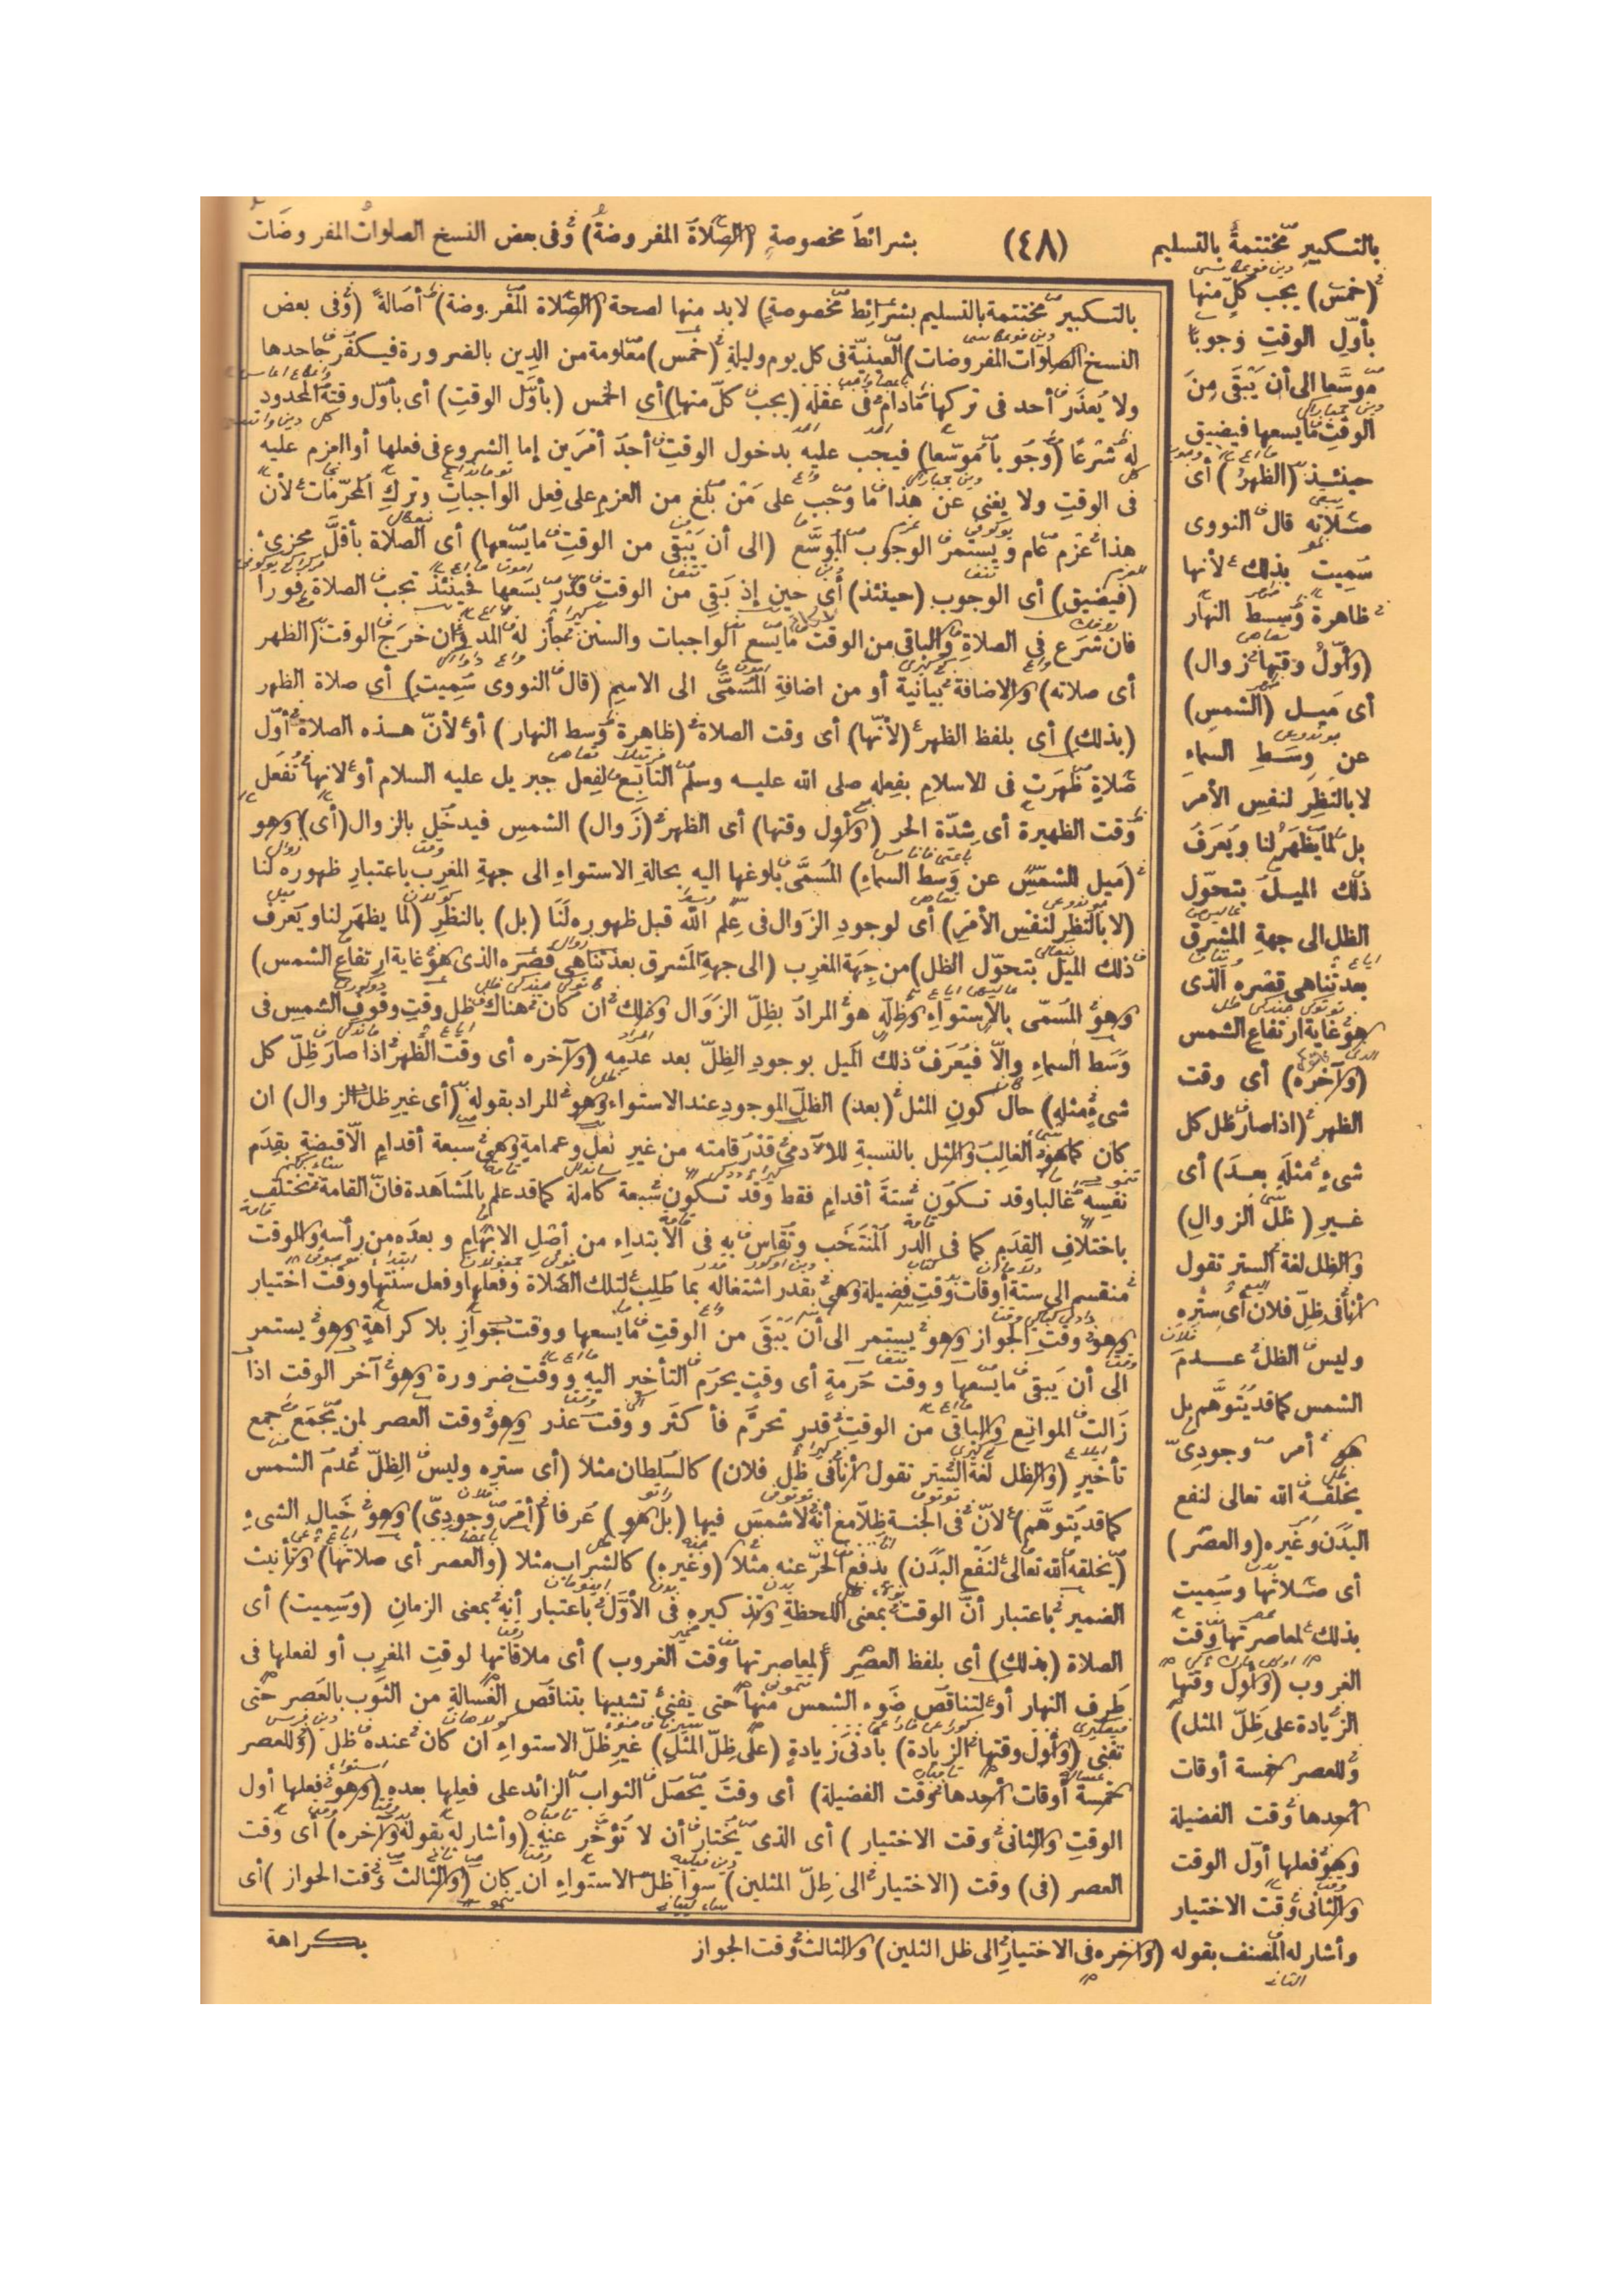 بالتكبير مختتمة بالتسليم (٤٨) بشرائط مخصوصة (الصلاة المفروضة) وفى بعض النسخ الصلوات المفروضات
(خمس) يجب كل منها
بأول الوقت وجوبا
موسعا الى أن يبقى من
الوقت ما يسعها فيضيق
حينئذ (الظهر) أى
صلاته قال النووى
سميت بذلك لأنها
ظاهرة وسط النهار
(وأول وقتها زوال)
أى ميل (الشمس)
عن وسط السماء
لا بالنظر لنفس الأمر
بل لما يظهر لنا ويعرف
ذلك الميل بتحول
الظل الى جهة المشرق
بعد تناهى قصره الذى
هو غاية ارتفاع الشمس
(وآخره) أى وقت
الظهر (اذا صار ظل كل
شىء مثله بعد) أى
غير (ظل الزوال)
والظل لغة الستر تقول
أنا فى ظل فلان أى ستره
وليس الظل عدم
الشمس كما قد يتوهم بل
هو أمر وجودى
يخلقه الله تعالى لنفع
البدن وغيره (والعصر)
أى صلاتها وسميت
بذلك لمعاصرتها وقت
الغروب (وأول وقتها
الزيادة على ظل المثل)
وللعصر خمسة أوقات
أحدها وقت الفضيلة
وهو فعلها أول الوقت
والثانى وقت الاختيار
وأشار له المصنف بقوله (وآخره فى الاختيار الى ظل المثلين) والثالث وقت الجواز
بالتكبير مختتمة بالتسليم بشرائط مخصوصة) لابد منها لصحة (الصلاة المفروضة) أصالة (وفى بعض
النسخ الصلوات المفروضات) العينية فى كل يوم وليلة (خمس) معلومة من الدين بالضرورة فيكفر جاحدها
ولا يعذر أحد فى تركها مادام فى عقله (يجب كل منها) أى الخمس (بأول الوقت) أى بأول وقته المحدود
له شرعا (وجوبا موسعا) فيجب عليه بدخول الوقت أحد أمرين إما الشروع فى فعلها أو العزم عليه
فى الوقت ولا يغنى عن هذا ما وجب على من بلغ من العزم على فعل الواجبات وترك المحرمات لأن
هذا عزم عام ويستمر الوجوب الموسع (الى أن يبقى من الوقت ما يسعها) أى الصلاة بأقل مجزئ
(فيضيق) أى الوجوب (حينئذ) أى حين إذ بقى من الوقت قدر يسعها فحينئذ تجب الصلاة فورا
فان شرع فى الصلاة والباقى من الوقت ما يسع الواجبات والسنن فجاز له المد وان خرج الوقت (الظهر
أى صلاته) والاضافة بيانية أو من اضافة المسمى الى الاسم (قال النووى سميت) أى صلاة الظهر
(بذلك) أى بلفظ الظهر (لأنها) أى وقت الصلاة (ظاهرة وسط النهار) أو لأن هذه الصلاة أول
صلاة ظهرت فى الاسلام بفعله صلى الله عليه وسلم التابع لفعل جبريل عليه السلام أو لانها تفعل
وقت الظهيرة أى شدة الحر (وأول وقتها) أى الظهر (زوال) الشمس فيدخل بالزوال (أى) وهو
(ميل الشمس عن وسط السماء) المسمى بلوغها اليه بحالة الاستواء الى جهة المغرب باعتبار ظهوره لنا
(لا بالنظر لنفس الأمر) أى لوجود الزوال فى علم الله قبل ظهوره لنا (بل) بالنظر (لما يظهر لنا ويعرف
ذلك الميل بتحول الظل) من جهة المغرب (الى جهة المشرق بعد تناهى قصره الذى هو غاية ارتفاع الشمس)
وهو المسمى بالاستواء وظله هو المراد بظل الزوال وذلك ان كان هناك ظل وقت وقوف الشمس فى
وسط السماء وإلا فيعرف ذلك الميل بوجود الظل بعد عدمه (وآخره أى وقت الظهر اذا صار ظل كل
شىء مثله) حال كون المثل (بعد) الظل الموجود عند الاستواء وهو المراد بقوله (أى غير ظل الزوال) ان
كان كما هو الغالب والمثل بالنسبة للآدمى قدر قامته من غير نعل وعمامة وهى سبعة أقدام الا قبضة بقدم
نفسه غالبا وقد تكون ستة أقدام فقط وقد تكون سبعة كاملة كما قد علم بالمشاهدة فان القامة تختلف
باختلاف القدم كما فى الدر المنتخب وتقاس به فى الابتداء من أصل الابهام وبعده من رأسه والوقت
منقسم الى ستة أوقات وقت فضيلة وهى بقدر اشتغاله بما طلب لتلك الصلاة وفعلها وفعل سنتها ووقت اختيار
وهو وقت الجواز وهو يستمر الى أن يبقى من الوقت ما يسعها ووقت جواز بلا كراهة وهو يستمر
الى أن يبقى ما يسعها ووقت حرمة أى وقت يحرم التأخير اليه ووقت ضرورة وهو آخر الوقت اذا
زالت الموانع والباقى من الوقت قدر تحرم فأكثر ووقت عذر وهو وقت العصر لمن يجمع جمع
تأخير (والظل لغة الستر تقول أنا فى ظل فلان) كالسلطان مثلا (أى ستره وليس الظل عدم الشمس
كما قد يتوهم) لأن فى الجنة ظلا مع أنه لا شمس فيها (بل هو) عرفا (أمر وجودى) وهو خيال الشىء
(يخلقه الله تعالى لنفع البدن) بدفع الحر عنه مثلا (وغيره) كالشراب مثلا (والعصر أى صلاتها) وتأنيث
الضمير باعتبار أن الوقت بمعنى اللحظة وتذكيره فى الأول باعتبار أنه بمعنى الزمان (وسميت) أى
الصلاة (بذلك) أى بلفظ العصر (لمعاصرتها وقت الغروب) أى ملاقاتها لوقت المغرب أو لفعلها فى
طرف النهار أو لتناقص ضوء الشمس منها حتى يفنى تشبيها بتناقص الغسالة من الثوب بالعصر حتى
تفنى (وأول وقتها الزيادة) بأدنى زيادة (على ظل المثل) غير ظل الاستواء ان كان عنده ظل (وللعصر
خمسة أوقات أحدها وقت الفضيلة) أى وقت يحصل الثواب الزائد على فعلها بعده (وهو فعلها أول
الوقت والثانى وقت الاختيار) أى الذى يختار أن لا تؤخر عنه (وأشار له بقوله وآخره) أى وقت
العصر (فى) وقت (الاختيار الى ظل المثلين) سوا ظل الاستواء ان كان (والثالث وقت الجواز) أى
بكراهة